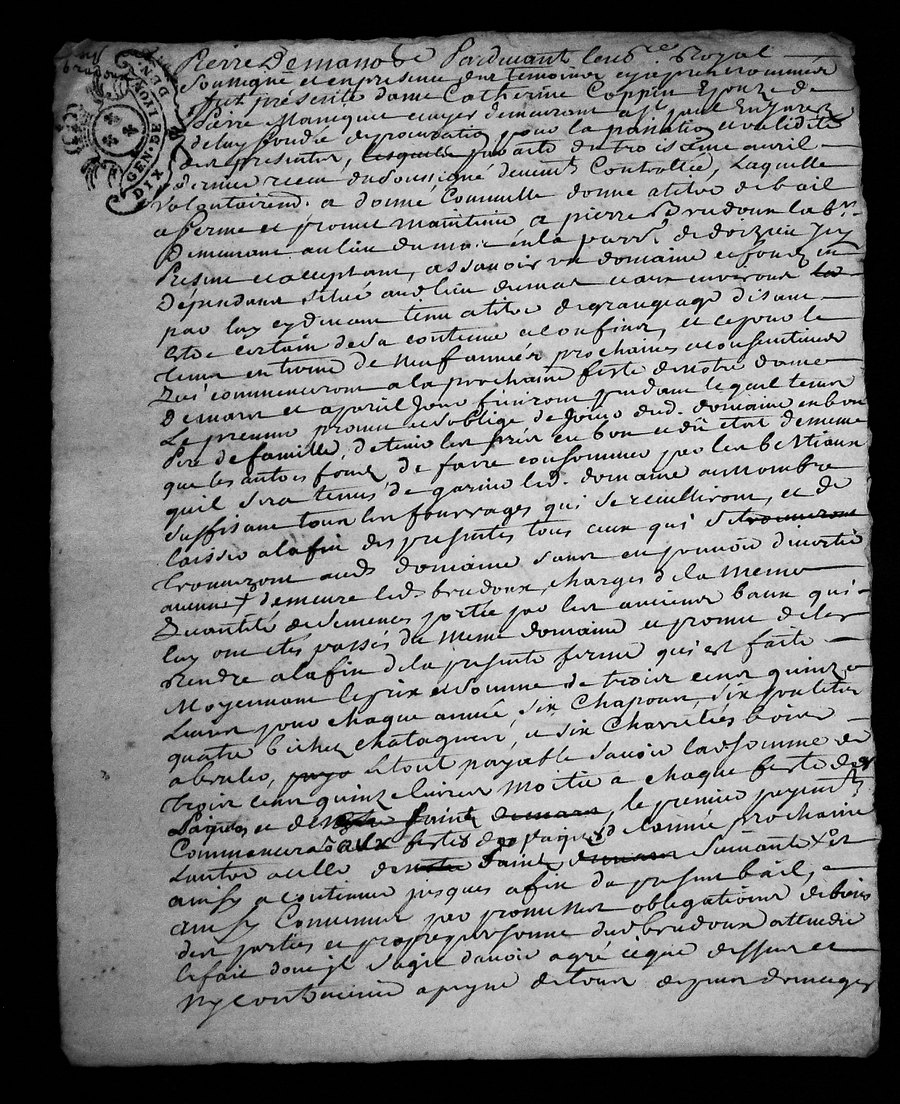 GEN. DE LYON
DIX DEN.
Pierre Demano Pardevant le no.re Royal
Soussigné et en presence des temoins cy apres nommés
fut présente dame Catherine Coppin Epouse de
Pierre ecuyer demeurant a St paul En Jarez
de luy fondée de procuration pour la et validité
des presentes, du troisieme avril
dernier receu du soussigné dement Controllée, Laquelle
volontairemt. a donné Commme donne a titre de bail
a ferme et promet maintenir a pierre Brudoux lab.r
Demeurant au lieu du mas en la parr.e de doizieu Icy
Present et acceptant, assavoir un domaine et fonds en
Dépendans situé audt lieu du mas et aux environs
par luy cy devant tenu a titre de grangeage disant
estre certain de sa contenue et confins, et ce pour le
tems et terme de neuf années prochaines et consecutives
qui commenceront a la prochaine feste de notre dame
De mars et a pareil Jour finiront pendant lequel tems
Le preneur promet et s'oblige de Jouir dud. domaine en bon
Pere de famille, de tenir les prés en bon et dû etat de meme
que les autres fonds, de faire consommer par les bestiaux
quil sera tenus de garnir led. domaine au nombre
suffisant tous les fourrages qui se receuilliront, et de
laisser a la fin des presentes tous ceux qui se
trouveront audt domaine sans en pouvoir divertir
aucune + demeure led. brudoux chargés de la meme
Quantité de semences portée par les anciens baux qui
luy ont étés passés du meme domaine et promet de les
Rendre a la fin de la presente ferme qui est faite
Moyennant le prix et somme de trois cens quinze
Livres pour chaque année, six Chapons, six poulets
quatre bichets chataignes, et six Charretées bois
a bruler, Le tout payable savoir lad. somme de
trois cens quinze livres moitié a chaque feste de
Paques et de saint le premier payemt
Commencera aux festes de Paques de l'année prochaine
Lautre a celle de saint suivante et
ainsy a continuer jusques a fin du present bail,
ainsy Convenus par promesses obligations de biens
des parties et propre personne dud brudoux attendu
le fait dont jl s'agit davoir agré ce que dessus et
Ny contrevenir a peyne de tous depens domages